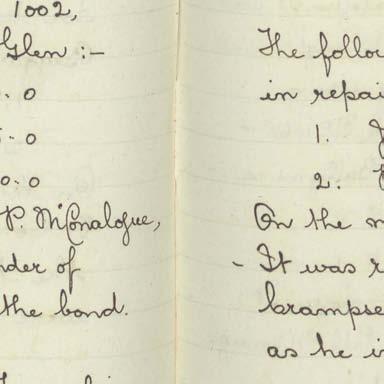 1002,
Glen :-
. 0
. 0
0. 0
P. McConalogue,
nder of
the bond.
The follow
in repai
1.
2.
On the m
- It was r
brampse
as he i